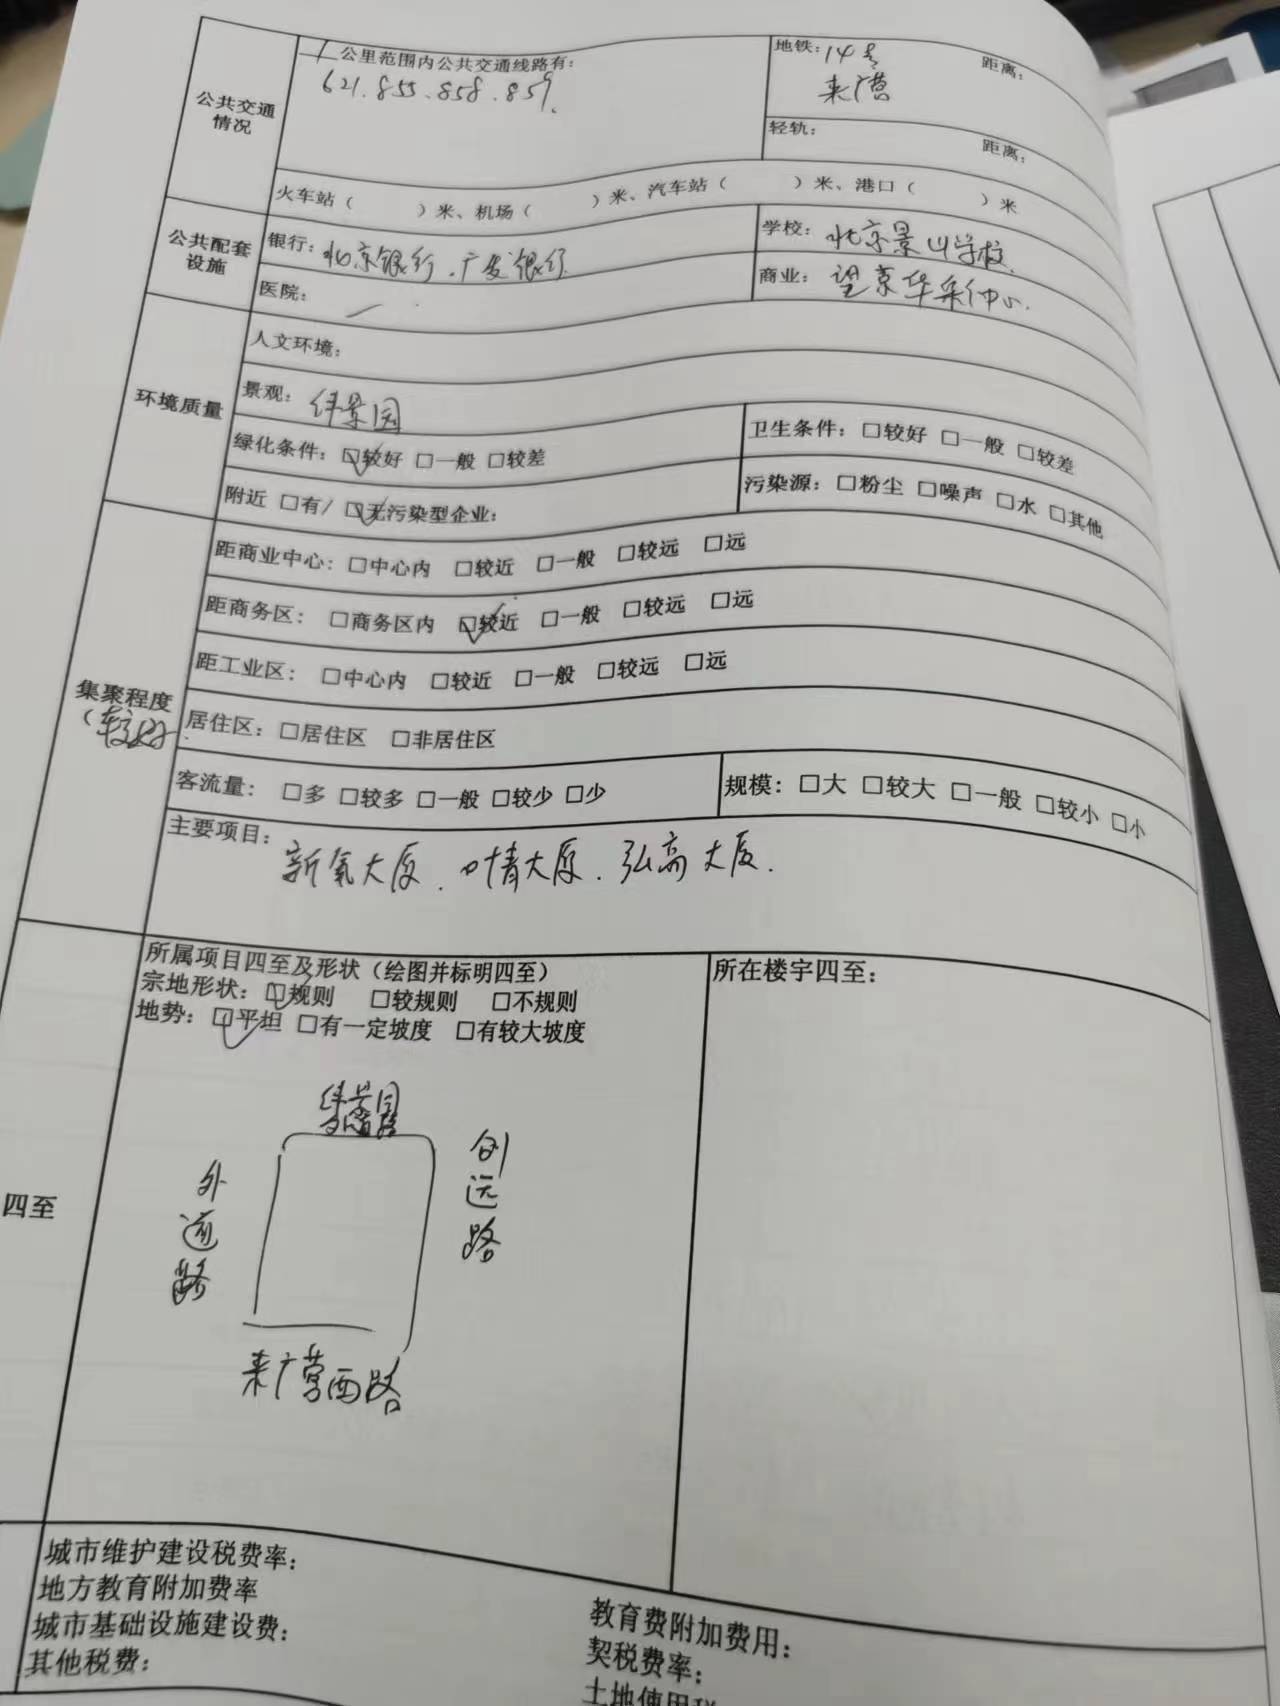 公共交通情况
1公里范围内公共交通线路有：
621.855.858.859.
地铁：14号 距离：
来广营
轻轨： 距离：
火车站（ ）米、机场（ ）米、汽车站（ ）米、港口（ ）米
公共配套设施
银行：北京银行.广发银行
学校：北京景山学校.
医院：—
商业：望京华彩中心.
环境质量
人文环境：
景观：纬景园
绿化条件：☑较好 □一般 □较差
卫生条件：□较好 □一般 □较差
附近 □有/ ☑无污染型企业：
污染源：□粉尘 □噪声 □水 □其他
集聚程度
（较好
距商业中心：□中心内 □较近 □一般 □较远 □远
距商务区：□商务区内 ☑较近 □一般 □较远 □远
距工业区：□中心内 □较近 □一般 □较远 □远
居住区：□居住区 □非居住区
客流量：□多 □较多 □一般 □较少 □少
规模：□大 □较大 □一般 □较小 □小
主要项目：
新氧大厦.叶青大厦.弘高大厦.
四至
所属项目四至及形状（绘图并标明四至）
宗地形状：☑规则 □较规则 □不规则
地势：☑平坦 □有一定坡度 □有较大坡度
所在楼宇四至：
纬景园
外道路
创远路
来广营西路
城市维护建设税费率：
地方教育附加费率
城市基础设施建设费：
其他税费：
教育费附加费用：
契税费率：
土地使用税